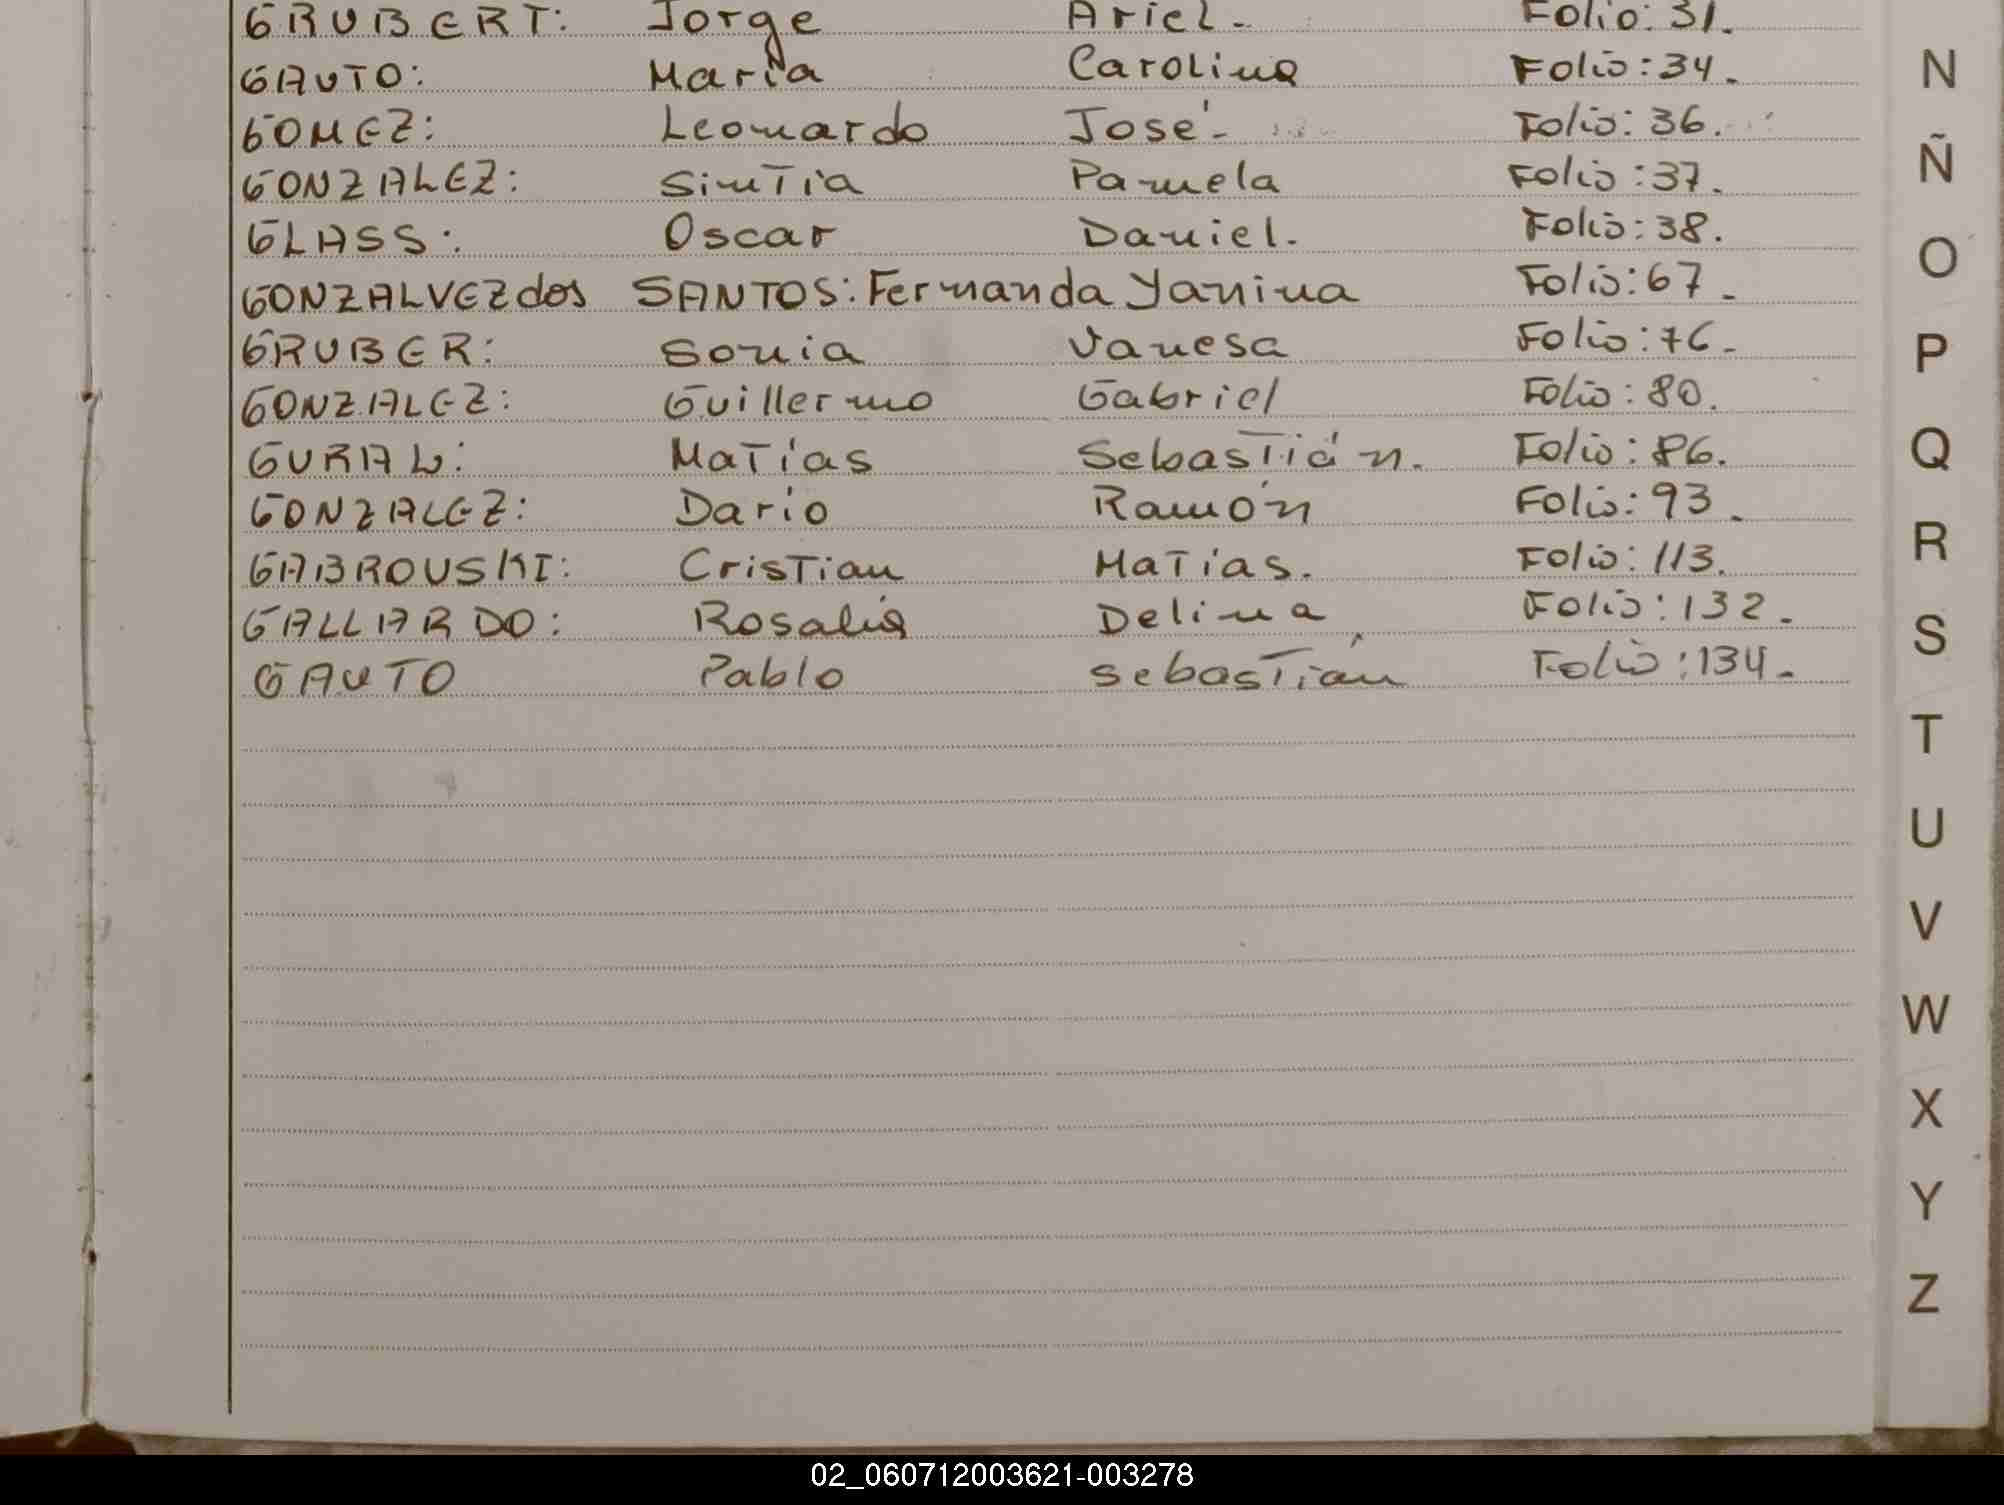 GRUBERT: Jorge Ariel. Folio: 31.
GAUTO: María Carolina Folio: 34.
GOMEZ: Leonardo José. Folio: 36.
GONZALEZ: Sintia Pamela Folio: 37.
GLASS: Oscar Daniel. Folio: 38.
GONZALVEZ dos SANTOS: Fernanda Yanina Folio: 67.
GRUBER: Sonia Vanesa Folio: 76.
GONZALEZ: Guillermo Gabriel Folio: 80.
GURAL: Matías Sebastián. Folio: 86.
GONZALEZ: Darío Ramón Folio: 93.
GABROUSKI: Cristian Matías. Folio: 113.
GALLARDO: Rosalía Delina Folio: 132.
GAUTO Pablo Sebastián Folio: 134.
N
Ñ
O
P
Q
R
S
T
U
V
W
X
Y
Z
02_060712003621-003278